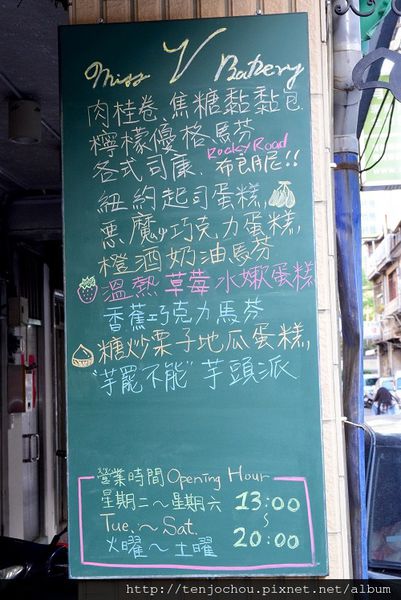 Miss V Bakery
肉桂卷、焦糖黏黏包
檸檬優格馬芬
Rocky Road
各式司康、布良月尼!!
紐約起司蛋糕,
惡魔ㄉ巧克力蛋糕,
橙酒奶油馬芬
溫熱草莓冰嫩蛋糕
香蕉巧克力馬芬
糖炒栗子地瓜蛋糕,
"芋罷不能"芋頭派
營業時間 Opening Hour
星期二~星期六 13:00
Tue.~Sat. ~
火曜~土曜 20:00
http://tenjochou.pixnet.net/album